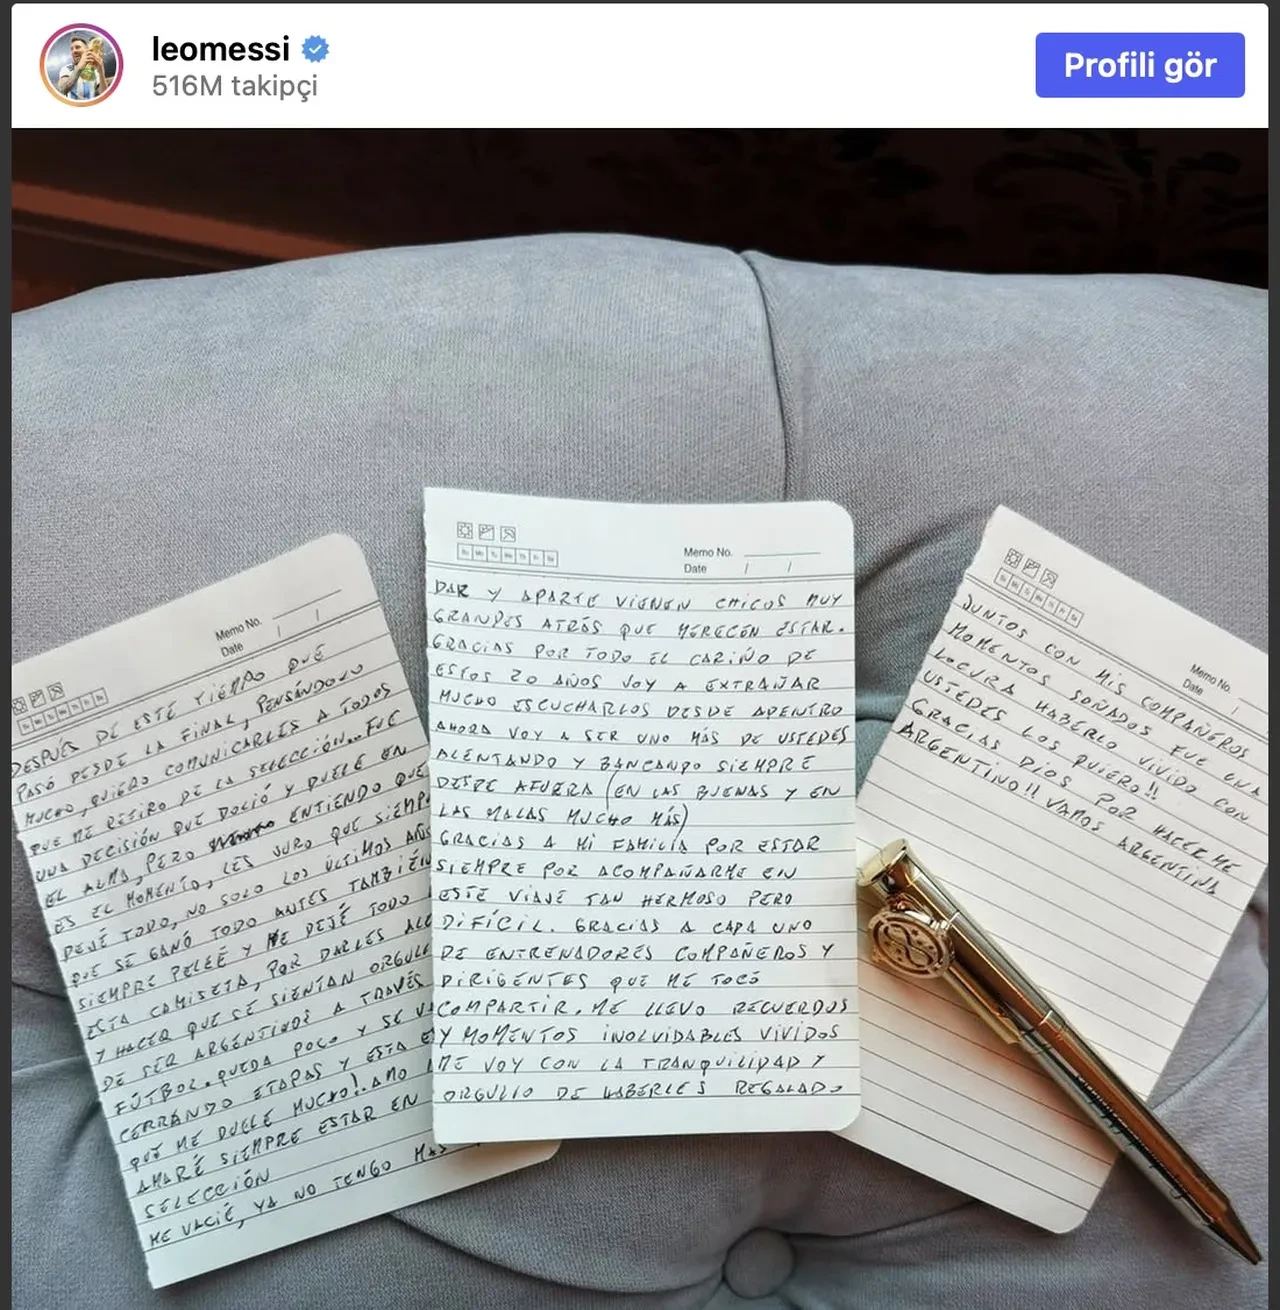 leomessi
516M takipçi
Profili gör
Memo No.
Date / /
DESPUÉS DE ESTE TIEMPO QUE
PASÓ DESDE LA FINAL, PENSÁNDOLO
MUCHO, QUIERO COMUNICARLES A TODOS
QUE ME RETIRO DE LA SELECCIÓN... FUE
UNA DECISIÓN QUE DOLIÓ Y DUELE EN
EL ALMA, PERO ENTIENDO QUE
ES EL MOMENTO, LES JURO QUE SIEMP
DEJÉ TODO, NO SOLO LOS ÚLTIMOS AÑOS
QUE SE GANÓ TODO ANTES TAMBIÉN
SIEMPRE PELEÉ Y ME DEJÉ TODO
ESTA CAMISETA, POR DARLES ALE
Y HACER QUE SE SIENTAN ORGULL
DE SER ARGENTINOS A TRAVÉS
FÚTBOL. QUEDA POCO Y SE V
CERRANDO ETAPAS Y ESTA E
QUE ME DUELE MUCHO!. AMO
AMARÉ SIEMPRE ESTAR EN
SELECCIÓN
ME VACIÉ, YA NO TENGO MAS
Memo No.
Date / /
DAR Y APARTE VIENEN CHICOS MUY
GRANDES ATRÁS QUE MERECEN ESTAR.
GRACIAS POR TODO EL CARIÑO DE
ESTOS 20 AÑOS VOY A EXTRAÑAR
MUCHO ESCUCHARLOS DESDE ADENTRO
AHORA VOY A SER UNO MÁS DE USTEDES
ALENTANDO Y BANCANDO SIEMPRE
DESDE AFUERA (EN LAS BUENAS Y EN
LAS MALAS MUCHO MÁS)
GRACIAS A MI FAMILIA POR ESTAR
SIEMPRE POR ACOMPAÑARME EN
ESTE VIAJE TAN HERMOSO PERO
DIFÍCIL. GRACIAS A CADA UNO
DE ENTRENADORES COMPAÑEROS Y
DIRIGENTES QUE ME TOCÓ
COMPARTIR. ME LLEVO RECUERDOS
Y MOMENTOS INOLVIDABLES VIVIDOS
ME VOY CON LA TRANQUILIDAD Y
ORGULLO DE HABERLES REGALADO
Memo No.
Date /
JUNTOS CON MIS COMPAÑEROS
MOMENTOS SOÑADOS FUE UNA
LOCURA HABERLO VIVIDO CON
USTEDES LOS QUIERO!!
GRACIAS DIOS POR HACERME
ARGENTINO!! VAMOS ARGENTINA